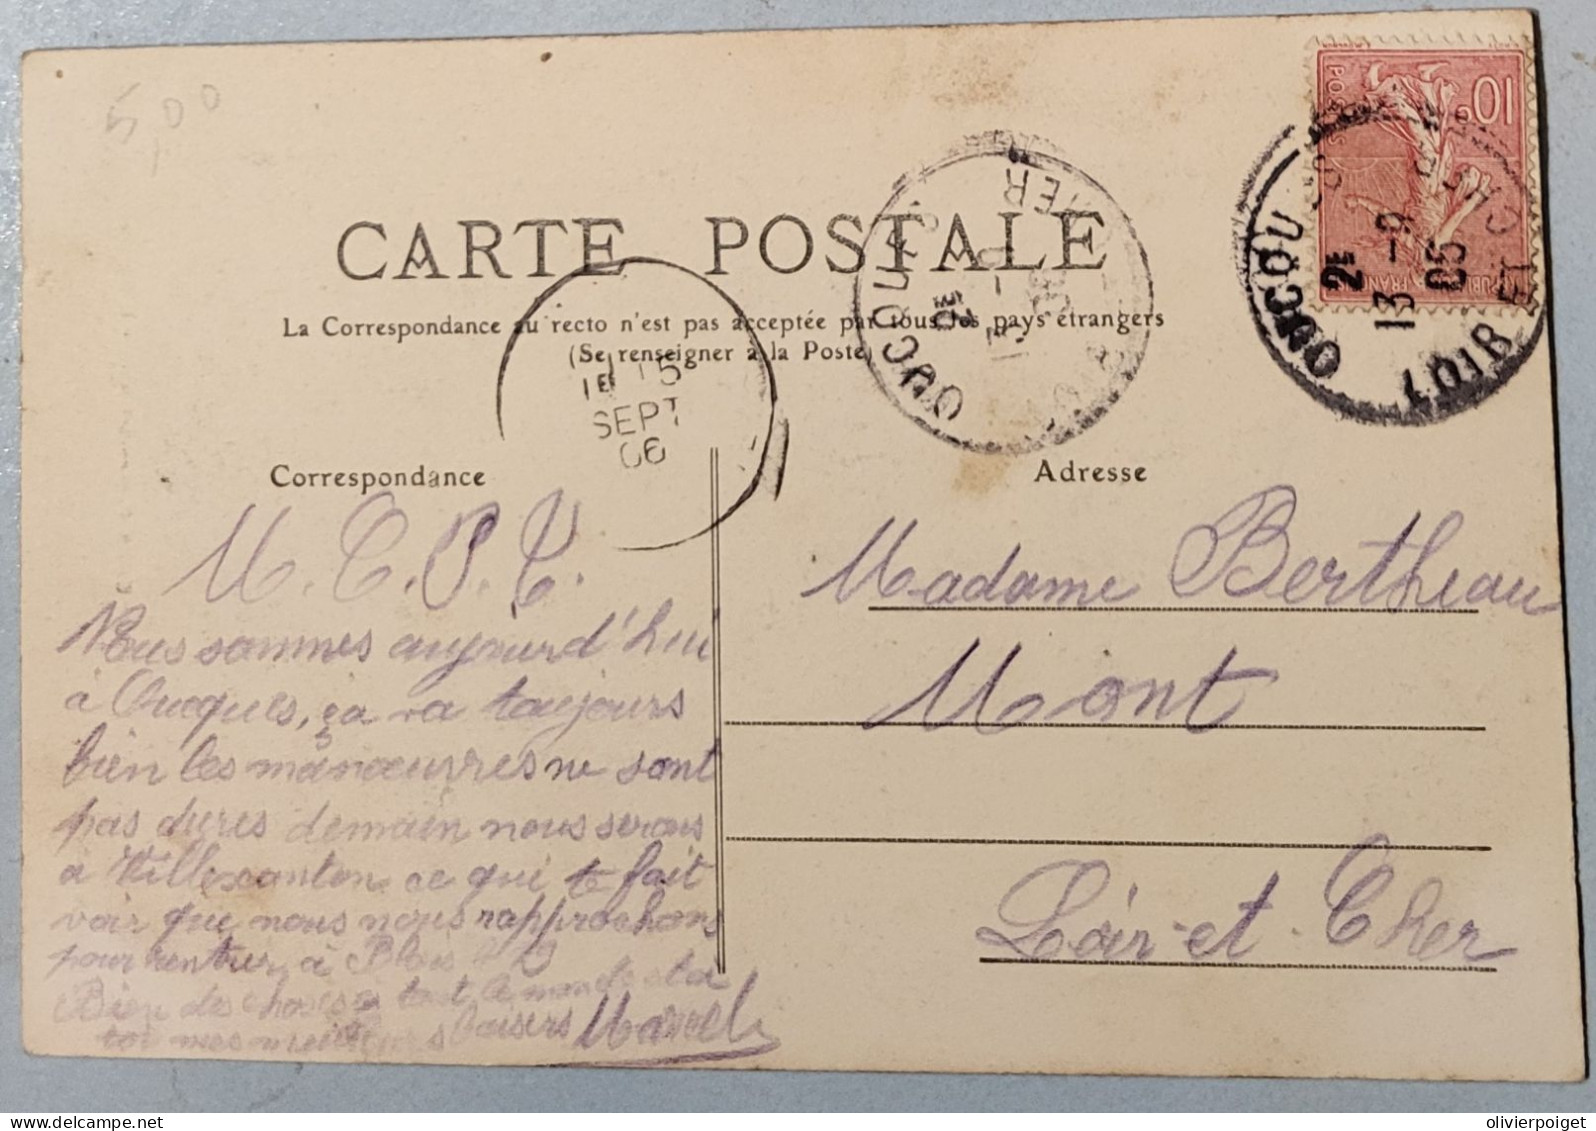 5,00
CARTE POSTALE
La Correspondance au recto n'est pas acceptée par tous les pays étrangers
(Se renseigner à la Poste)
10c
POSTES
OUCQUES
2E
13 -9
05
LOIR ET CHER
OUCQUES
2E
LOIR ET CHER
1E 15
SEPT
06
Correspondance
Adresse
M. C. P. C.
Nous sommes aujourd'hui
à Oucques, ça va toujours
bien les manœuvres ne sont
pas dures demain nous serons
a Villexanton ce qui te fait
voir que nous nous rapprochons
pour rentrer à Blois
Bien des choses a tout le monde et a
toi mes meilleurs baisers Marcel
Madame Bertheau
Mont
Loir-et-Cher
olivierpoiget